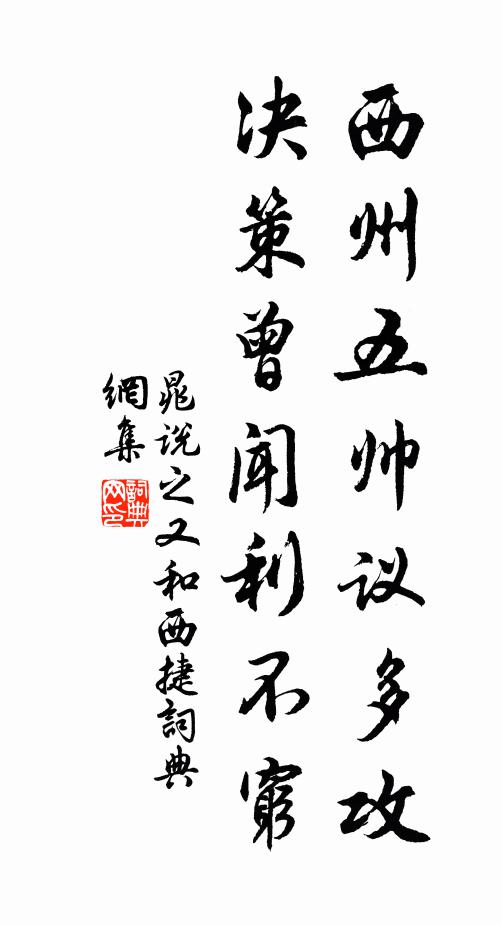 西州五帅议多攻
决策曾闻利不窮
晁说之又和西捷詞典
網集
詞典網印